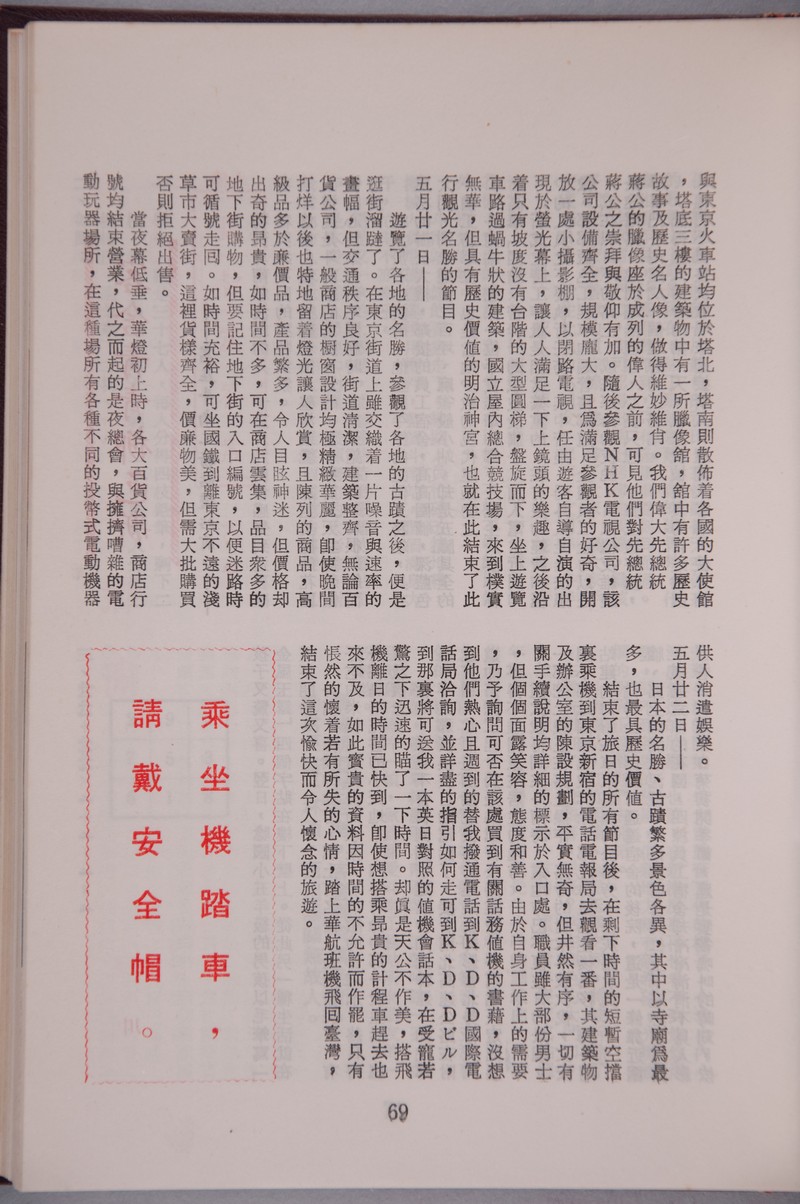 與東京火車站均位於塔北，塔南則散佈着各國的大使館
，塔底三樓的建築物中有一所臘像館，館中有許多歷史
故事及歷史名人像，做得維妙維肖。我們偉大先總統
蔣公的臘像座於成列的偉人之前，可見他們對先總統
蔣公之崇拜與敬仰有加。隨後參觀NHK電視公司，該
公司設備齊全，規模龐大，且爲滿足參觀者的好奇，開
放一處小攝影棚，以閉路電視，任由遊客自導自演的出
現於螢光幕上，讓人人滿足一下上鏡頭的樂趣，之後沿
着只有坡度沒有台階的大型圓梯，盤旋而下，坐上遊覽
車路過蝸牛狀的建築，國立屋內總合競技場，來到樸實
無華，但具有歷史價值的明治神宮，也就在此結束了此
行觀光名勝的節目。
五月廿一日——
遊覽了各地的名勝，參觀了各地的古蹟之後，便是
逛街溜躂了。在東京街道上雖交織着一片噪音與速率的
畫幅，但交通秩序良好，街道清潔，建築整齊，無論百
貨公司，一般商店的櫥窗設計均極精緻華麗，卽使晚間
打烊以後也特地留着燈光讓人欣賞，且陳列的商品，高
級品多於廉價品，產品繁多，令人目眩神迷，但價格却
出奇的昂貴，如時間不多，可在商店雲集，品目衆多的
地下街購物，但要記住地下街的入口編號，以便迷路時
可循號走回。如時間充裕，可坐國鐵到離東京不遠的淺
草市大賣街，這裡貨樣齊全，價廉物美，但需大批購買
否則拒絕出售。
當夜幕低垂，華燈初上時，各大百貨公司，商店行
號均結束營業，代之而起的是夜總會，與擁擠嘈雜的電
動玩器場所，在這種場所有各種不同的投幣式電動機器
供人消遣娛樂。
五月廿二日——
日本的名勝、古蹟繁多景色各異，其中以寺廟爲最
多，也最具歷史價值。
結束了旅日的所有節目後，在剩下時間的短暫空擋
裏乘機到東京新宿的電話電報局去觀看一番，其建築物
及辦公室的陳設規劃，平實無奇，但井然有序，一切有
關手續說明均詳細的標示於入口處。職員雖大部份男士
，但個個面露笑容，態度和善。由於自身工作上的需要
，乃予詢問可否在該處買到有關話務值機的書藉，沒想
到他們熱心且週到的替我撥通電話到K、D、D國際電
話局洽詢，並詳盡的指引如何走可到K、D、Dビル，
到那裏將可送我一本英日對照的值機會話本，在受寵若
驚之下迅速的瞄了一下時間。却眞是天公不作美，搭飛
機離日的時間已快到，卽使想搭乘昂貴的計程車趕去也
來不及，如此寶貴的資料因時間的不允許而作罷，只有
悵然的懷着若有所失的心情，踏上華航班機飛回臺灣，
結束了這次愉快而令人懷念的旅遊。
乘坐機踏車，
請戴安全帽。
69